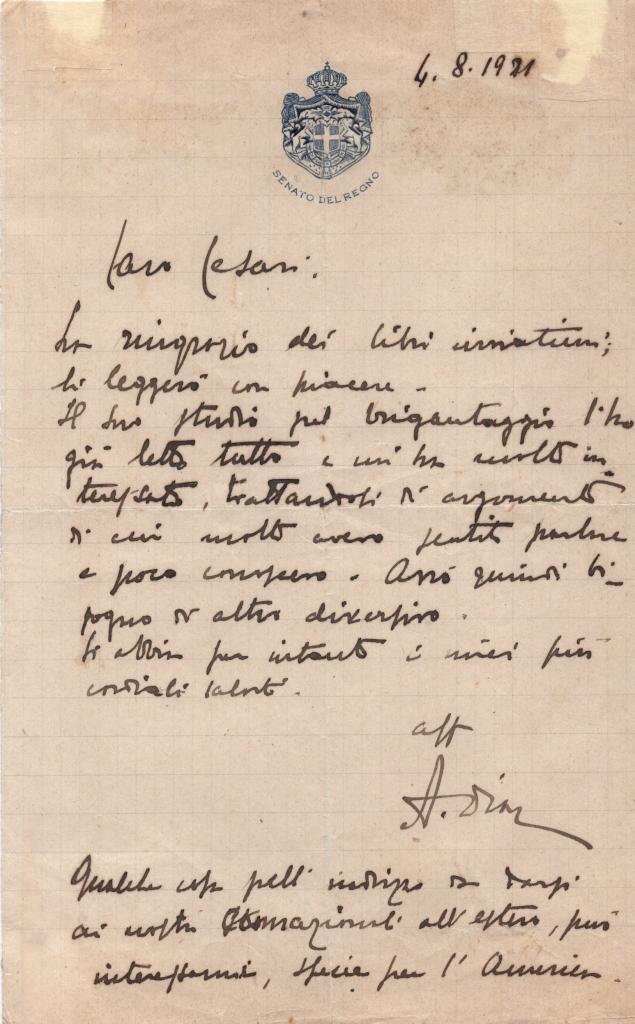 4. 8. 1921
SENATO DEL REGNO
Caro Cesari,
La ringrazio dei libri inviatimi;
li leggerò con piacere -
Il suo studio sul brigantaggio l'ho
già letto tutto e mi ha molto in
teressato, trattandosi di argomento
di cui molto avevo sentito parlare
e poco conoscevo. Avrò quindi bi-
sogno di altro discorsivo.
Si abbia per intanto i miei più
cordiali saluti.
aff
A. Diaz
Qualche cosa sull'indirizzo da darsi
ai nostri connazionali all'estero, può
interessarmi, specie per l'America.